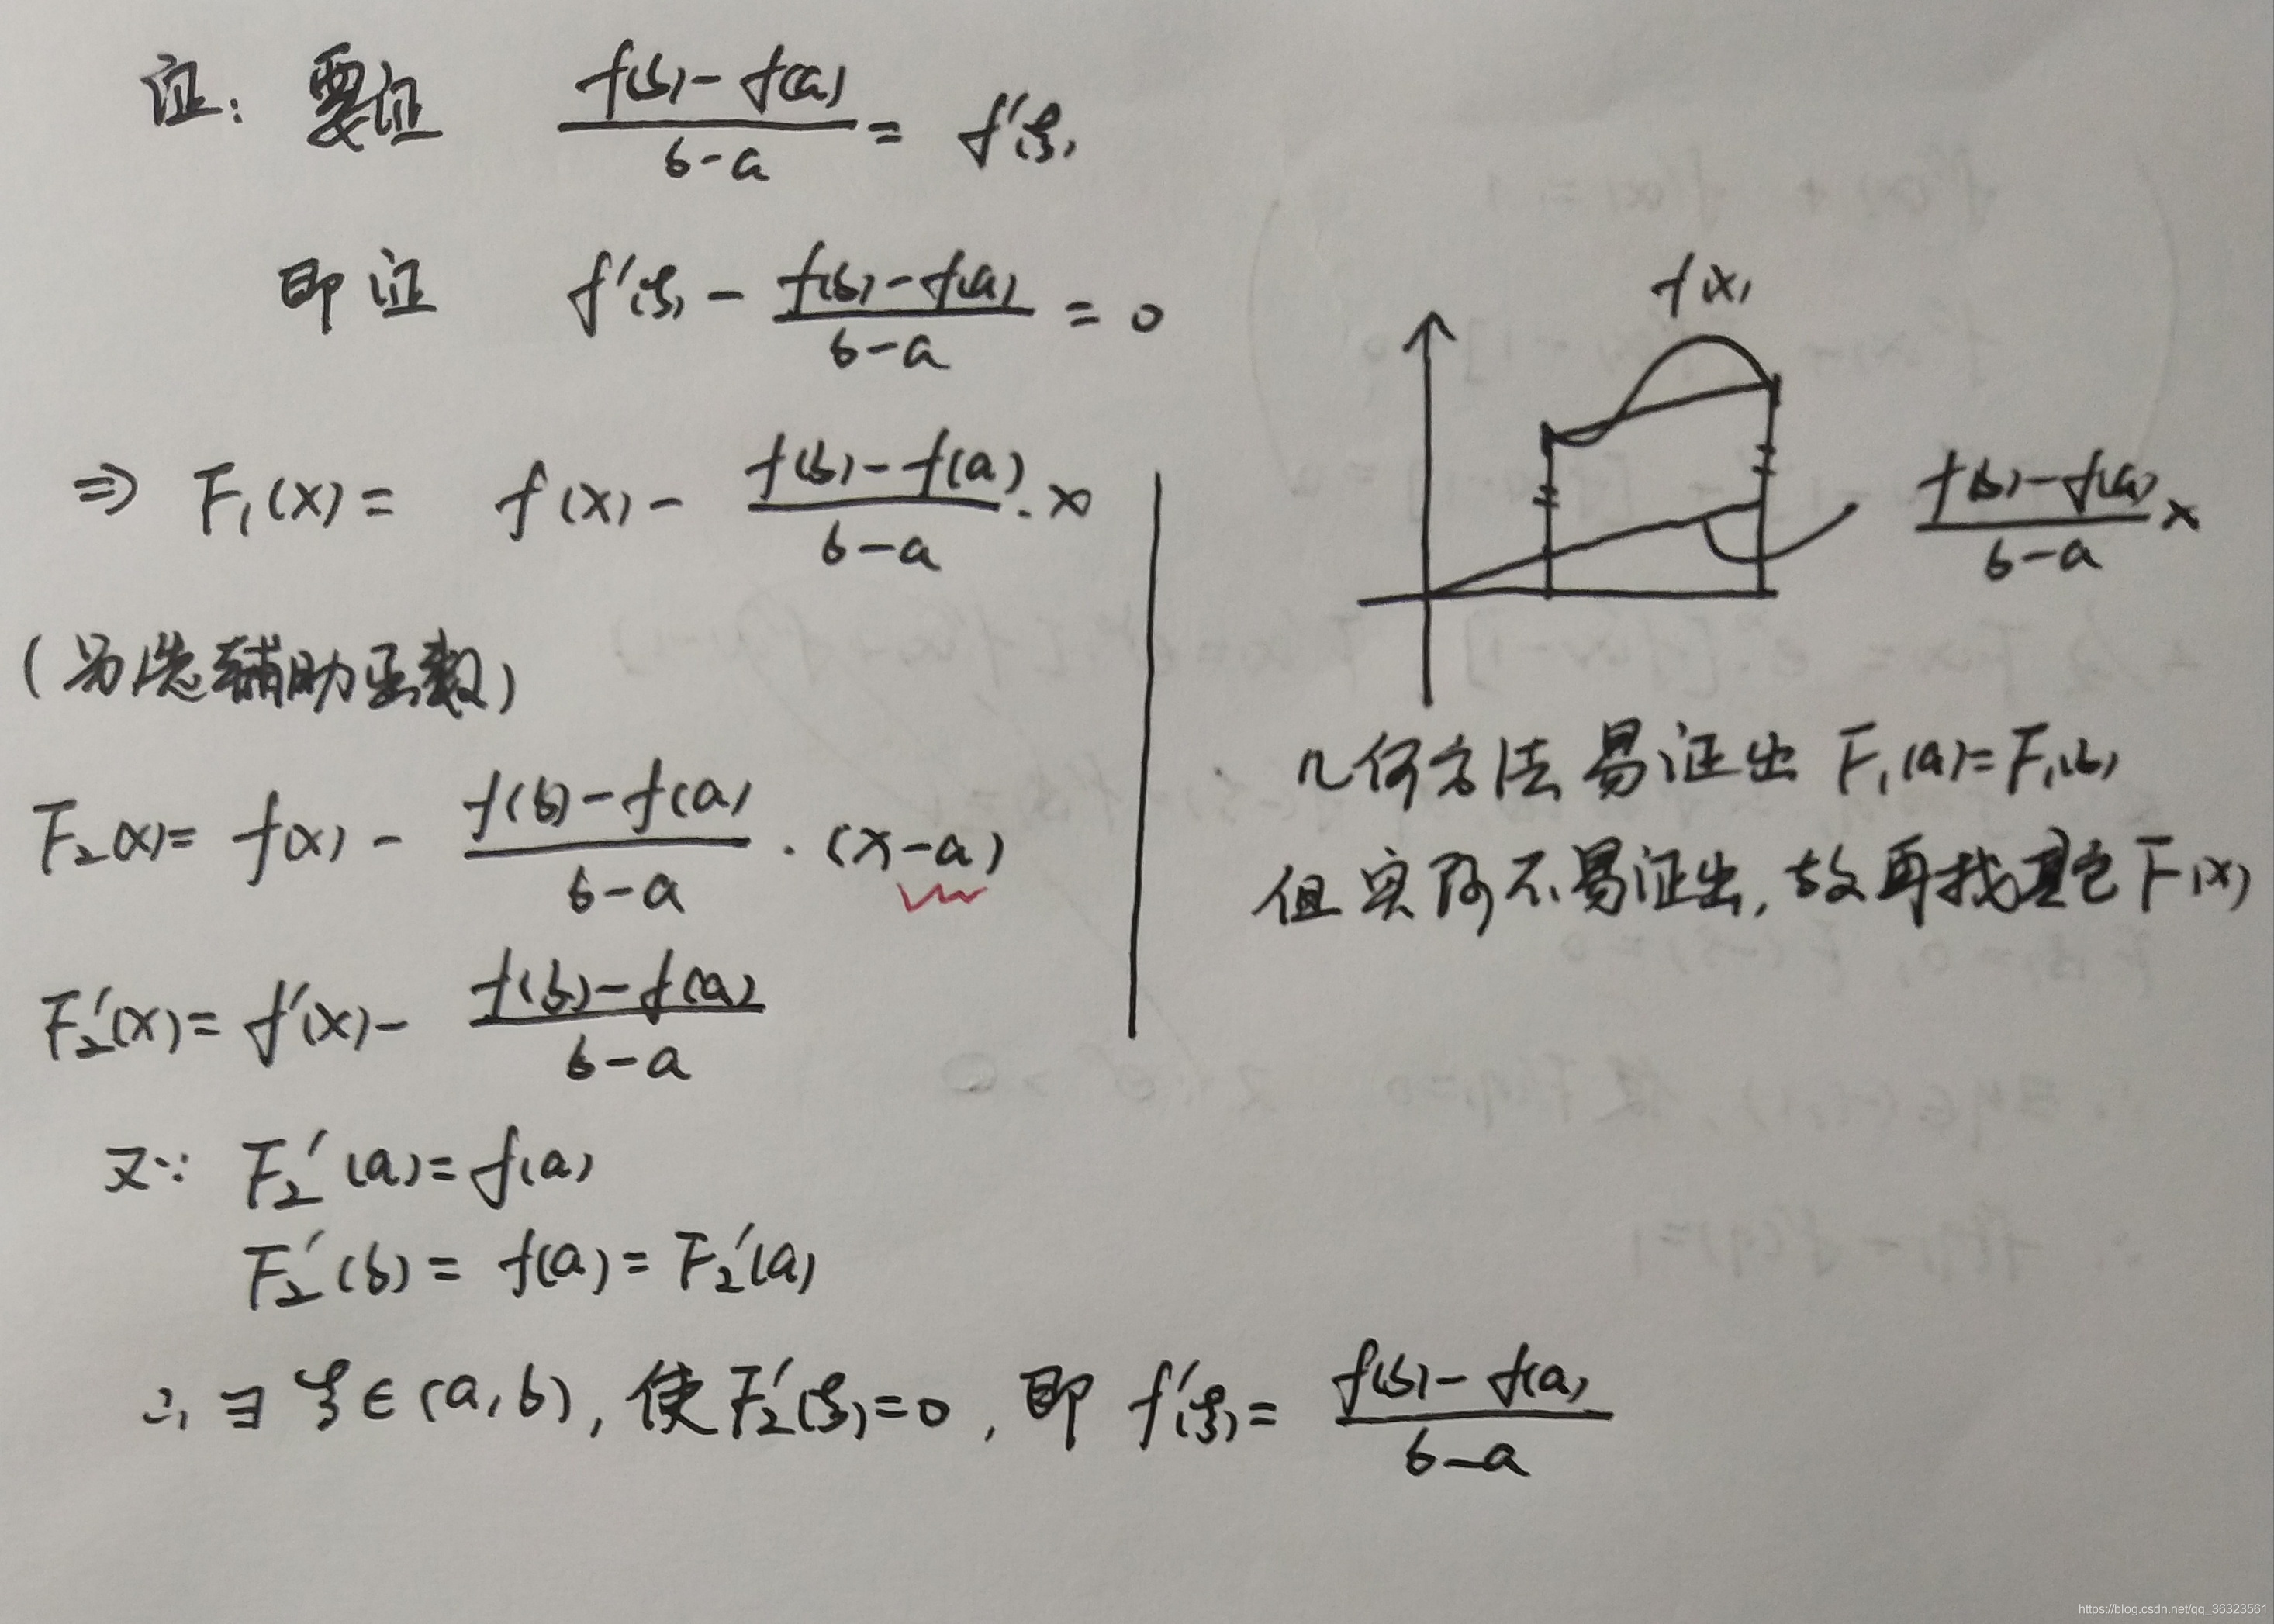 证: 要证 (f(b)-f(a))/(b-a) = f'(ξ)
即证 f'(ξ) - (f(b)-f(a))/(b-a) = 0
⇒ F₁(x) = f(x) - (f(b)-f(a))/(b-a) · x
(另选辅助函数)
F₂(x) = f(x) - (f(b)-f(a))/(b-a) · (x-a)
F₂'(x) = f'(x) - (f(b)-f(a))/(b-a)
又∵ F₂'(a) = f(a)
F₂'(b) = f(a) = F₂'(a)
∴ ∃ ξ∈(a,b), 使F₂'(ξ)=0, 即 f'(ξ) = (f(b)-f(a))/(b-a)
f(x)
(f(b)-f(a))/(b-a) x
几何方法易证出 F₁(a)=F₁(b)
但实际不易证出, 故再找其它F(x)
https://blog.csdn.net/qq_36323561